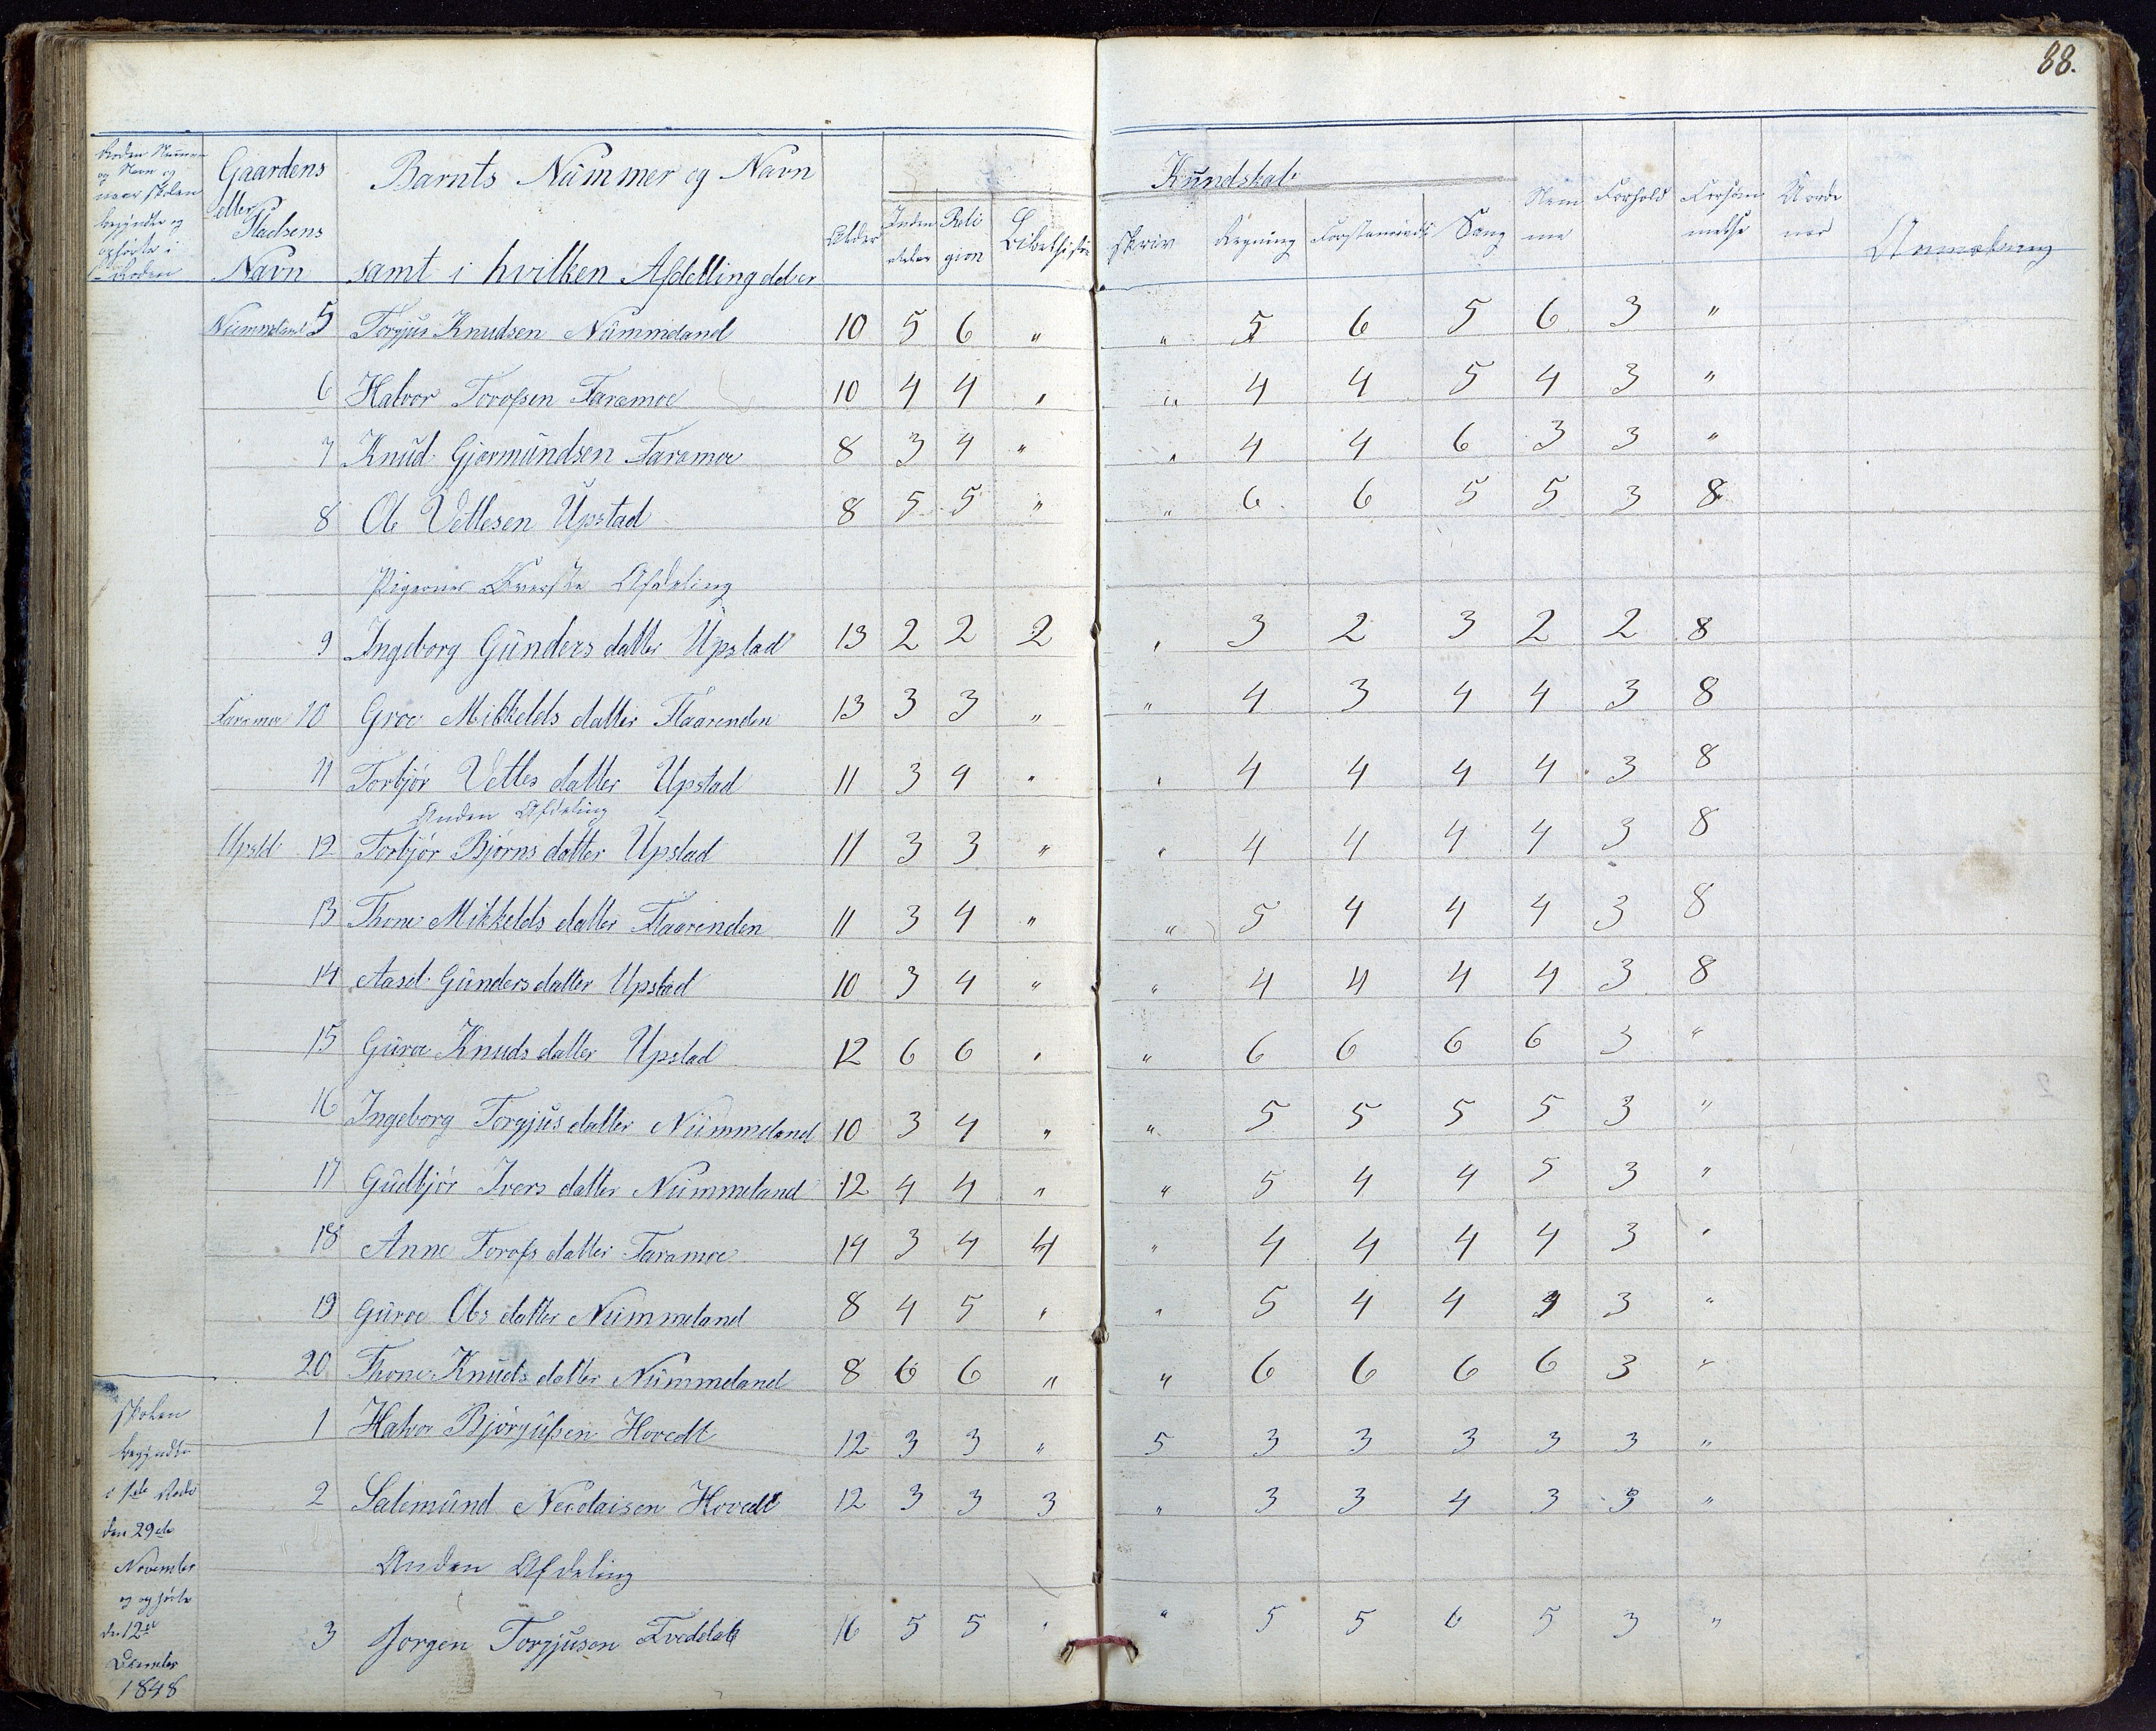 88.
Gaardens eller Pladsens Navn
Barnts Nummer og Navn samt i hvilken Afdelling det er
Alder
Inden
Reli gion
Bibelhisto
Kundskab
skriv
Regning
Sang
Nem me
Forhold
Forsøm melse
Anmerkning
Nummeland 5 Torgjus Knudsen Nummeland 10 5 6 " " 5 6 5 6 3 "
6 Halvor Torofsen Faramoe 10 4 4 " " 4 4 5 4 3 "
7 Knud Gjermundsen Faramoe 8 3 4 " " 4 4 6 3 3 "
8 Ole Vettesen Upstad 8 5 5 " " 6 6 5 5 3 8
Pigernes Øverste Afdeling
9 Ingeborg Gunders datter Upstad 13 2 2 2 " 3 2 3 2 2 8
Faramoe 10 Groe Mikkelds datter Flaarenden 13 3 3 " " 4 3 4 4 3 8
11 Torbjør Vettes datter Upstad 11 3 4 " " 4 4 4 4 3 8
Anden Afdeling
Upstd 12 Torbjør Bjørns datter Upstad 11 3 3 " " 4 4 4 4 3 8
13 Thone Mikkelds datter Flaarenden 11 3 4 " " 5 4 4 4 3 8
14 Aasel Gunders datter Upstad 10 3 4 " " 4 4 4 4 3 8
15 Guroe Knuds datter Upstad 12 6 6 " " 6 6 6 6 3 "
16 Ingeborg Torgjus datter Nummeland 10 3 4 " " 5 5 5 5 3 "
17 Gudbjør Ivers datter Nummeland 12 4 4 " " 5 4 4 5 3 "
18 Anne Torofs datter Faramoe 14 3 4 4 " 4 4 4 4 3 "
19 Guroe Ols datter Nummeland 8 4 5 " " 5 4 4 4 3 "
20 Thone Knuds datter Nummeland 8 6 6 " " 6 6 6 6 3 "
1 Halvor Bjørgufsen Hovedt 12 3 3 " 5 3 3 3 3 3 "
2 Salemund Nicolaisen Hovedt 12 3 3 3 " 3 3 4 3 3 "
Anden Afdeling
3 Jorgen Torgjusen 16 5 5 " " 5 5 6 5 3 "
skolen
begyndte
i 1ste Rode
den 29de
November
og ophørte
den 12te
December
1848